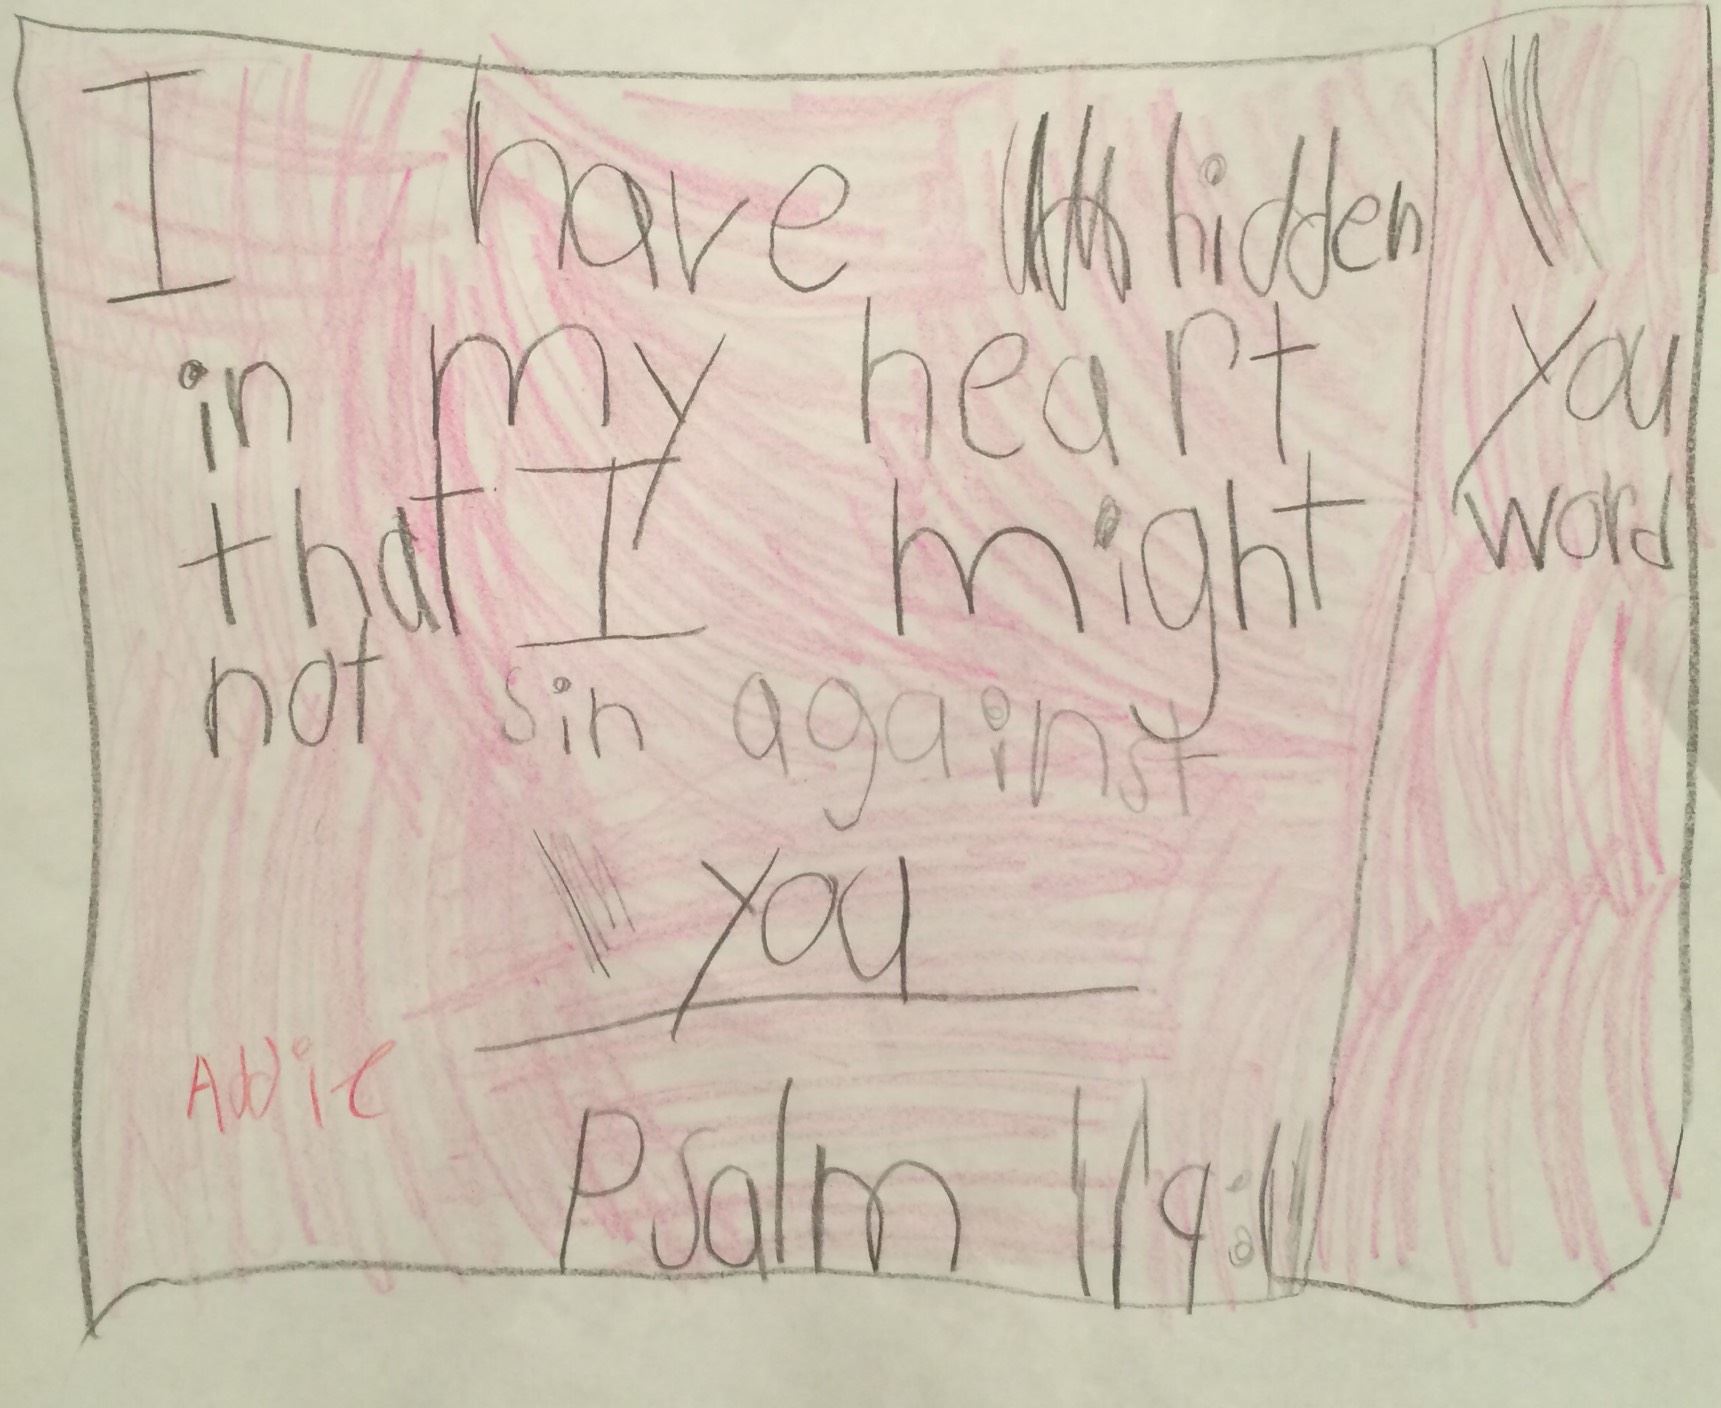 I have hidden
you
word
in my heart
that I might
not sin against
you
Addie
Psalm 119:11